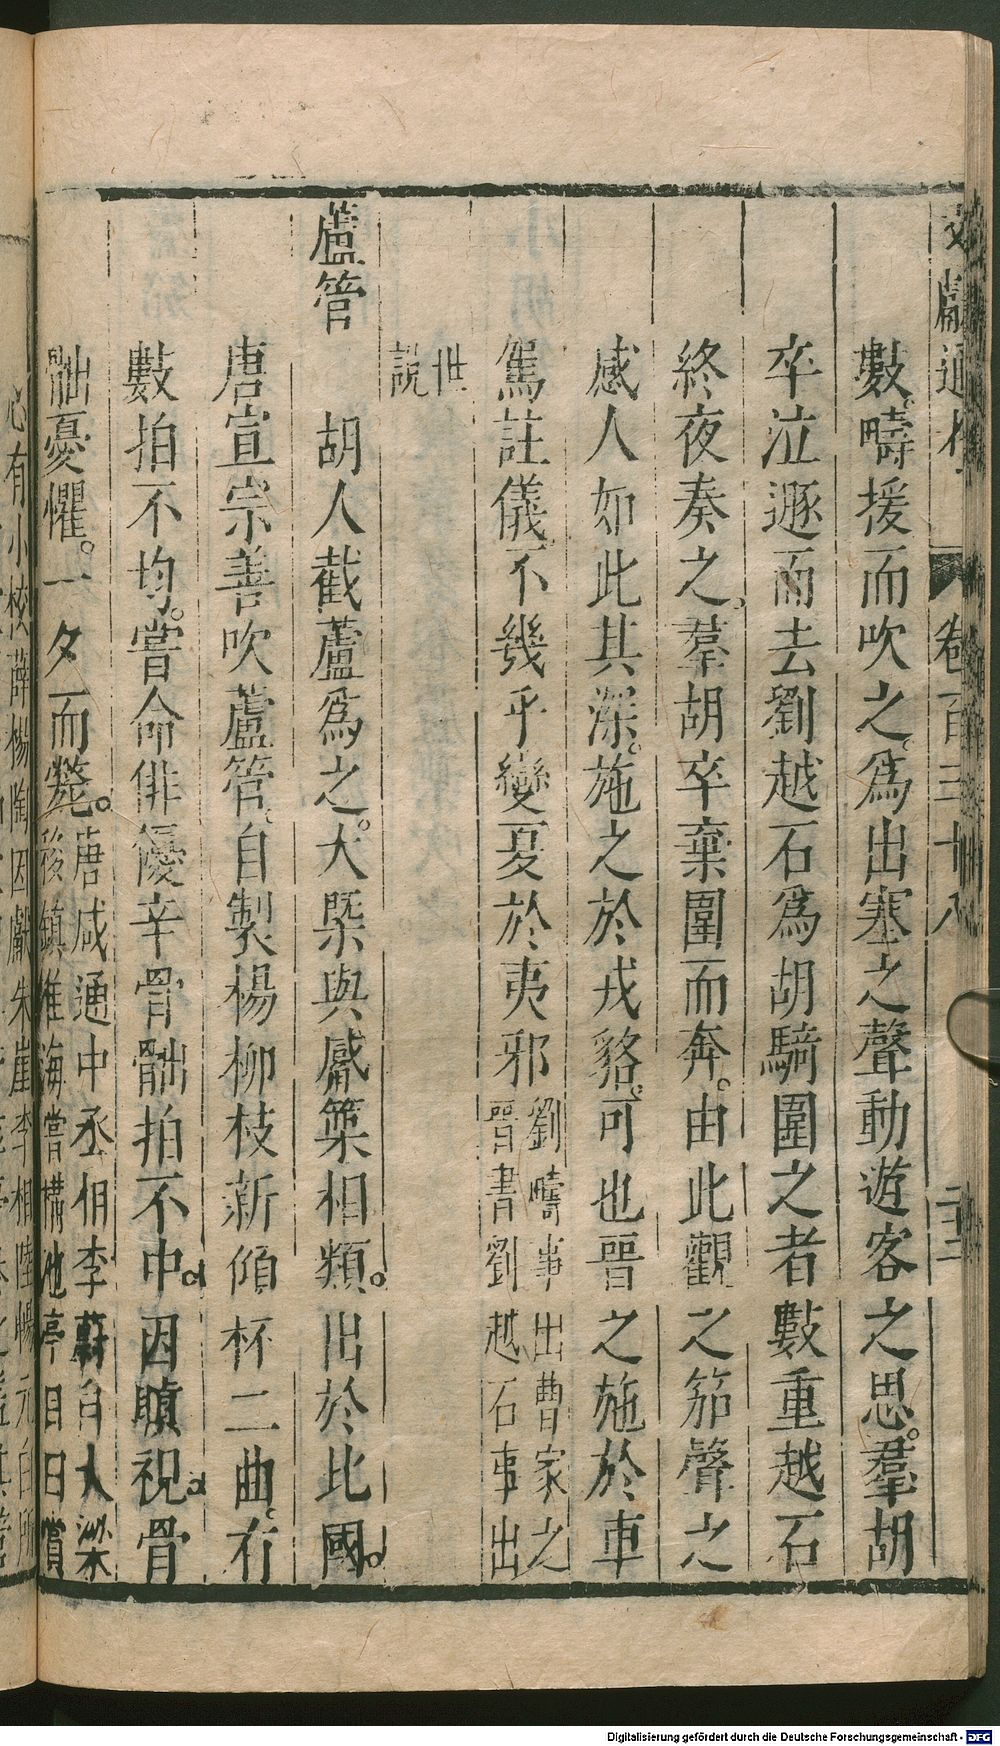 文獻通考 卷百三十八 二十三
數疇援而吹之爲出塞之聲動遊客之思羣胡
卒泣遯而去劉越石爲胡騎圍之者數重越石
終夜奏之羣胡卒棄圍而奔由此觀之笳聲之
感人如此其深施之於戎貉可也晉之施於車
駕註儀不幾乎變夏於夷邪劉疇事出曹家之
晉書劉越石事出
世
說
蘆管
胡人截蘆爲之大槩與觱篥相類出於北國
唐宣宗善吹蘆管自製楊柳枝新傾杯二曲有
數拍不均嘗命俳優辛骨䯄拍不中因瞋視骨
䯄憂懼一夕而斃
唐咸通中丞相李蔚自大梁
移鎮淮海嘗構池亭目曰賞
心有小校薛楊陶因獻朱崖李相陸暢元白所
Digitalisierung gefördert durch die Deutsche Forschungsgemeinschaft - DFG